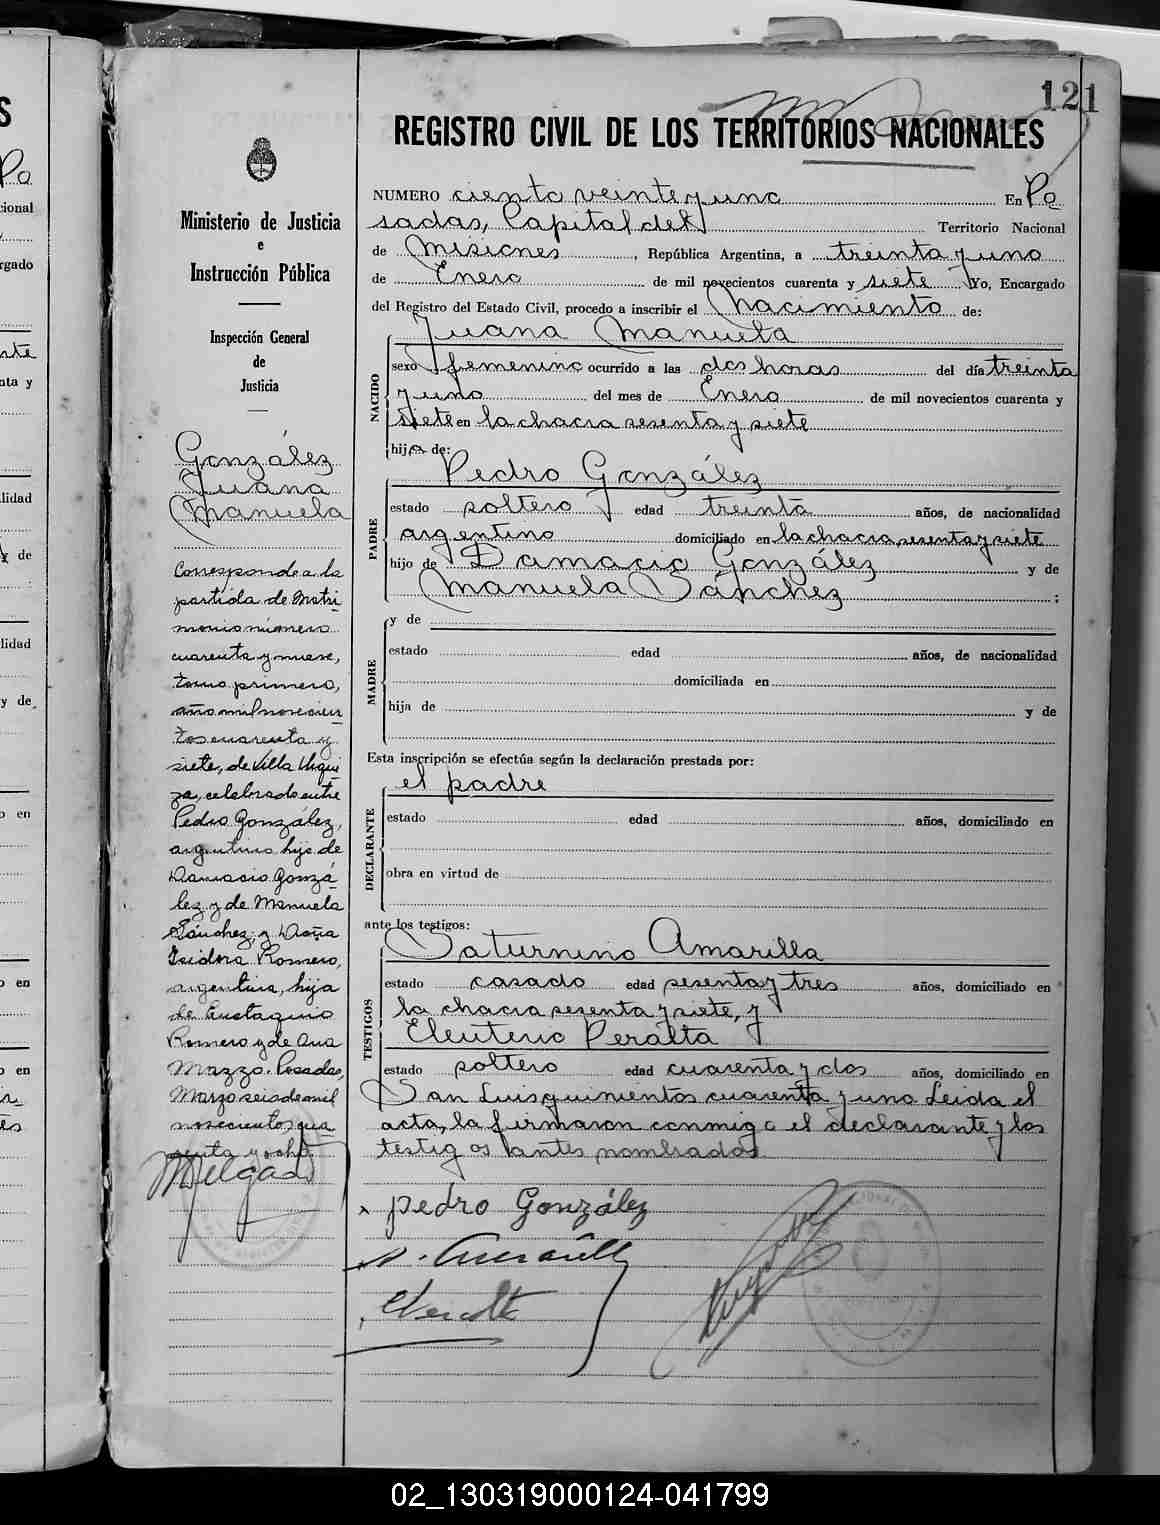 121
REGISTRO CIVIL DE LOS TERRITORIOS NACIONALES
NUMERO ciento veinte y uno En Po
sadas, Capital del Territorio Nacional
de Misiones, República Argentina, a treinta y uno
de Enero de mil novecientos cuarenta y siete Yo, Encargado
del Registro del Estado Civil, procedo a inscribir el Nacimiento de:
NACIDO
Juana Manuela
sexo femenino ocurrido a las dos horas del día treinta
y uno del mes de Enero de mil novecientos cuarenta y
siete en la chacra sesenta y siete
hija de:
PADRE
Pedro González
estado soltero edad treinta años, de nacionalidad
argentino domiciliado en la chacra sesenta y siete
hijo de Damacio González y de
Manuela Sánchez ;
MADRE
y de
estado edad años, de nacionalidad
domiciliada en
hija de y de
Esta inscripción se efectúa según la declaración prestada por:
DECLARANTE
el padre
estado edad años, domiciliado en
obra en virtud de
ante los testigos:
TESTIGOS
Saturnino Amarilla
estado casado edad sesenta y tres años, domiciliado en
la chacra sesenta y siete, y
Eleuterio Peralta
estado soltero edad cuarenta y dos años, domiciliado en
San Luis quinientos cuarenta y uno Leida el
acta, la firmaron conmigo el declarante y los
testigos antes nombrados
pedro González
Ministerio de Justicia
e
Instrucción Pública
Inspección General
de
Justicia
González
Juana
Manuela
Corresponde a la
partida de Matri
monio número
cuarenta y nueve,
tomo primero,
año mil novecien
tos cuarenta y
siete, de Villa Urqui
za, celebrado entre
Pedro González,
argentino hijo de
Damacio Gonzá
lez y de Manuela
Sánchez; y Doña
Isidora Romero,
argentina, hija
de Eustaquio
Romero y de Ana
Mazzo. Posadas,
Marzo seis de mil
novecientos cua
renta y ocho.
Melgar
02_130319000124-041799